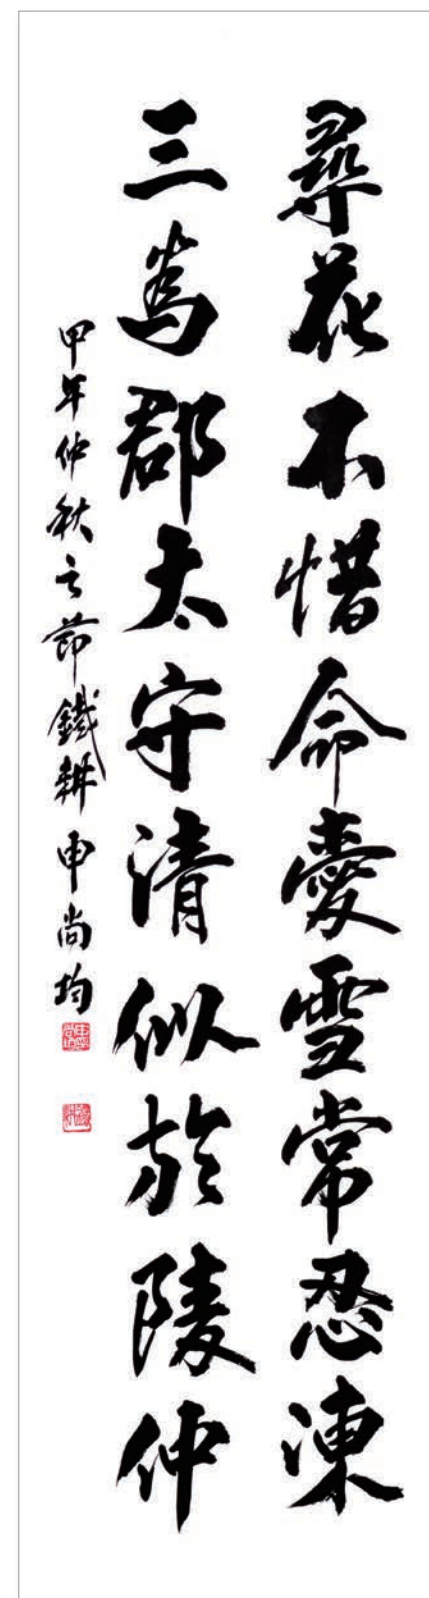 尋花不惜命愛雪常忍凍
三爲郡太守清似於陵仲
甲午仲秋之節鐵耕申尚均